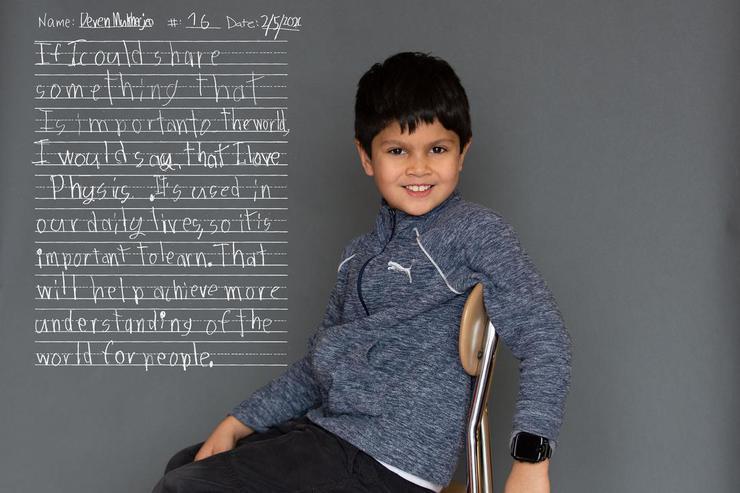 Name: Deven Mukherjee #: 16 Date: 2/5/202
If I could share
something that
Is important to the world,
I would say that I love
Physis. It's used in
our daily lives, so it is
important to learn. That
will help achieve more
understanding of the
world for people.
PUMA